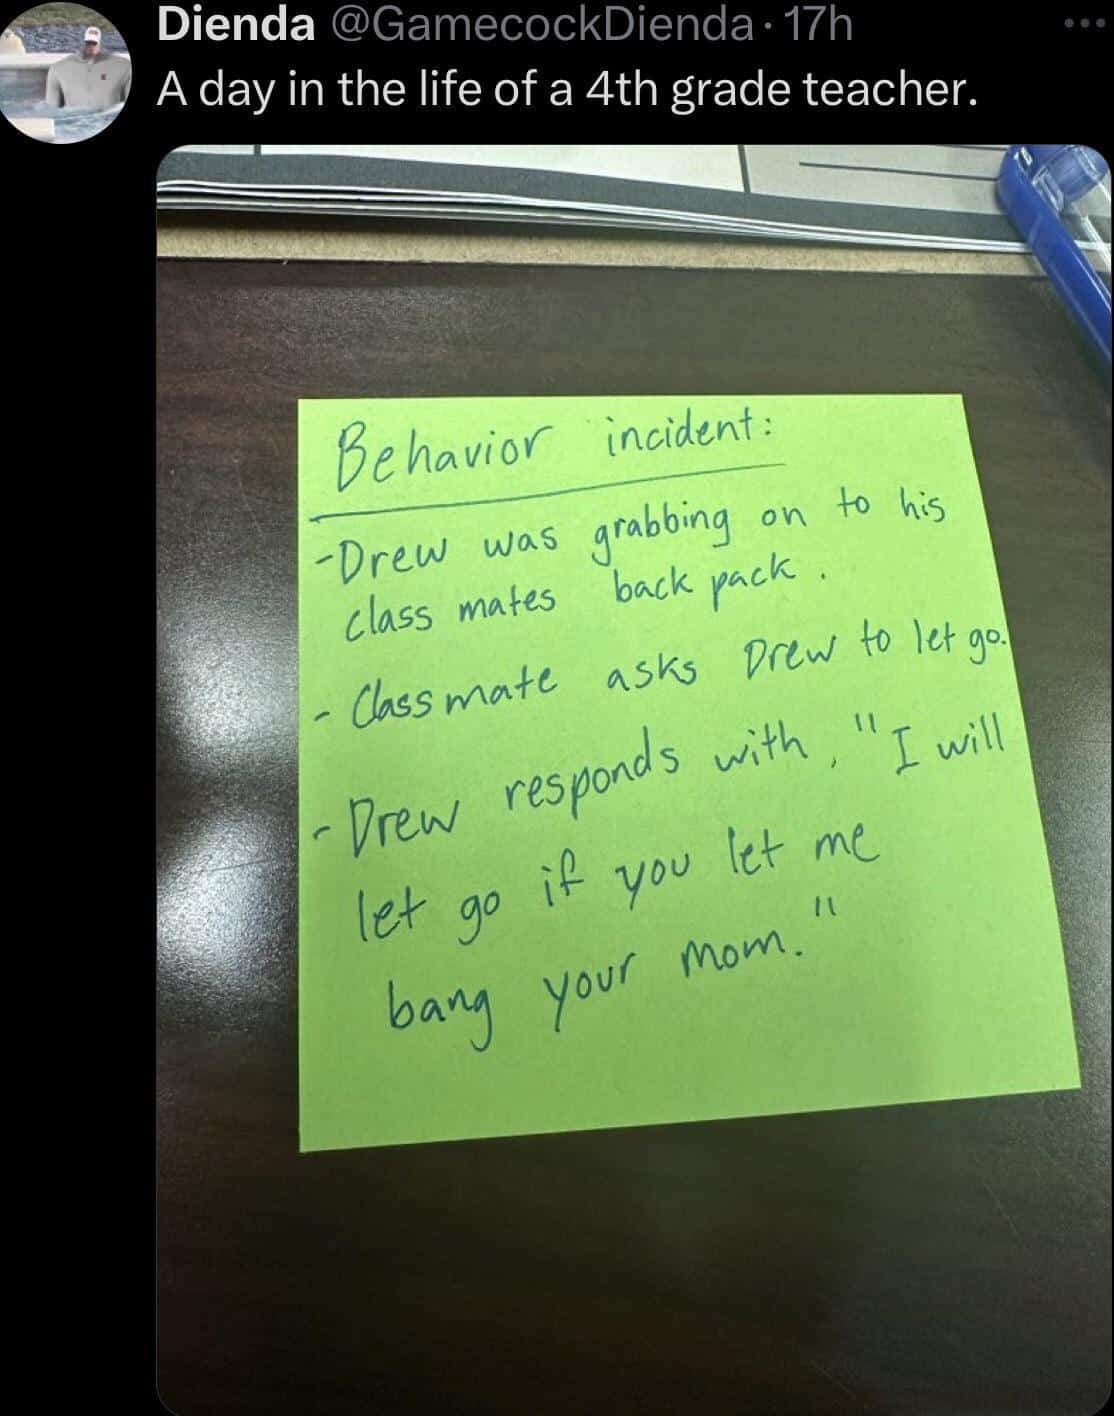 Dienda @GamecockDienda · 17h
A day in the life of a 4th grade teacher.
Behavior incident:
-Drew was grabbing on to his
class mates back pack.
- Classmate asks Drew to let go.
- Drew responds with, "I will
let go if you let me
bang your mom."